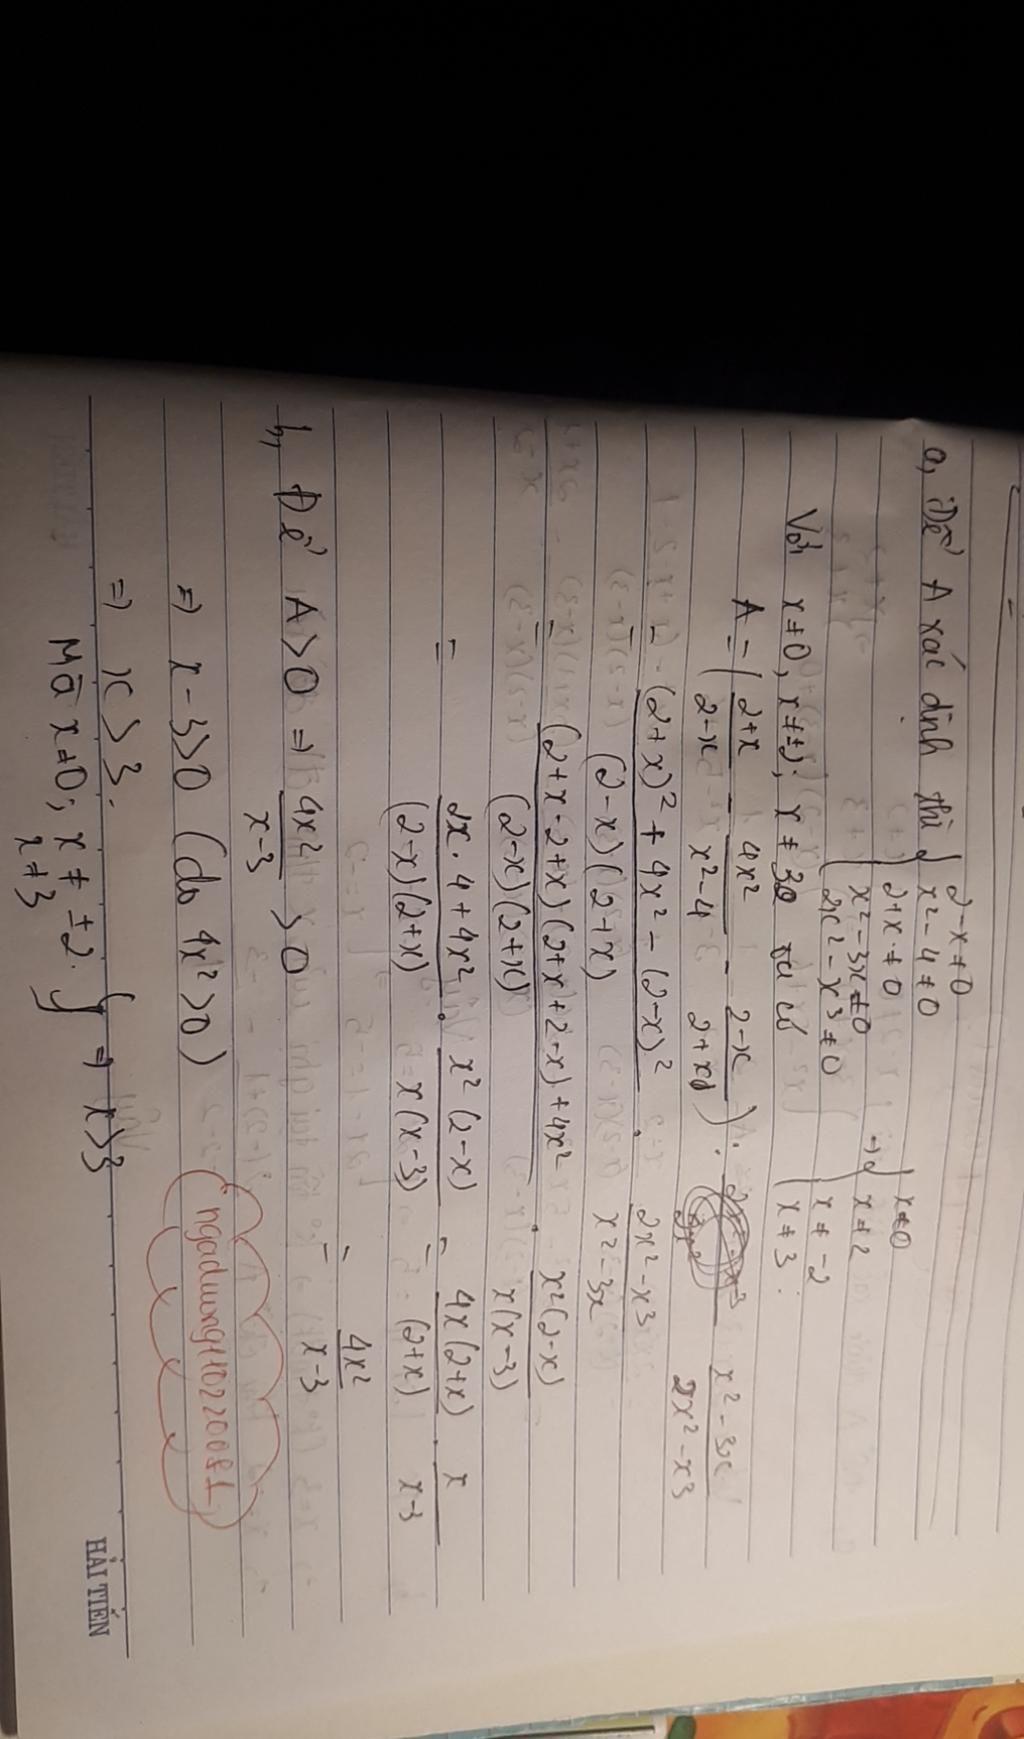 a, Để A xác định thì { 2-x≠0
x²-4≠0
2+x≠0
x²-3x≠0
2x²-x³≠0
=> { x≠0
x≠2
x≠-2
x≠3.
Với x≠0, x≠±2; x≠3 ta có
A = ( 2+x / 2-x - 4x² / x²-4 - 2-x / 2+x ) : x²-3x / 2x²-x³
= (2+x)² + 4x² - (2-x)² / (2-x)(2+x) . 2x²-x³ / x²-3x
= (2+x-2+x)(2+x+2-x)+4x² / (2-x)(2+x) . x²(2-x) / x(x-3)
= 2x.4+4x² / (2-x)(2+x) . x²(2-x) / x(x-3) = 4x(2+x) / (2+x) . x / x-3
= 4x² / x-3
b, Để A>0 => 4x² / x-3 > 0
=> x-3>0 (do 4x²>0)
=> x>3.
Mà x≠0; x≠±2.
x≠3
} => x>3
HẢI TIẾN